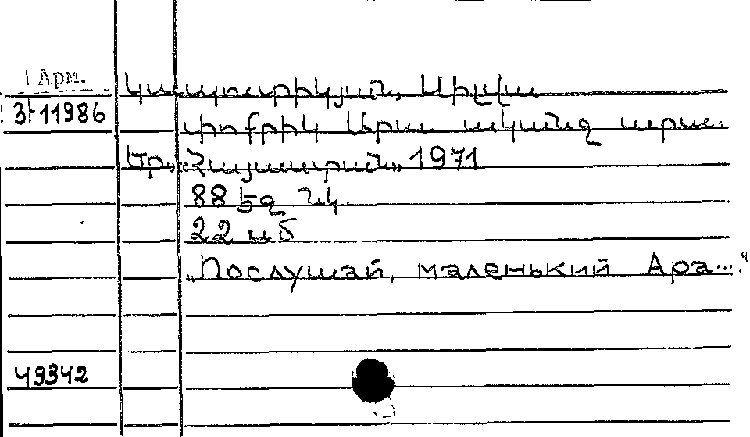 Арм.
Կապուտիկյան, Սիլվա
3-11986
Փոքրիկ Արա ականջ արա.
Եր., «Հայաստան», 1971
88 էջ նկ.
22 սմ
„Послушай, маленький Ара..."
49342